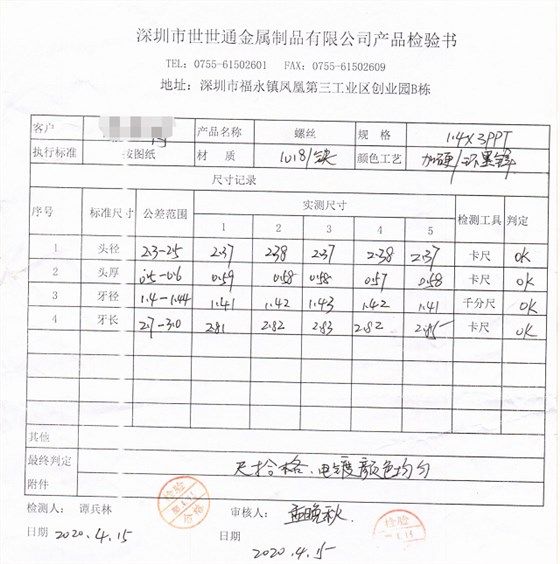 深圳市世世通金属制品有限公司产品检验书
TEL: 0755-61502601 FAX: 0755-61502609
地址: 深圳市福永镇凤凰第三工业区创业园B栋
客户 产品名称 螺丝 规 格 1.4×3PPT
执行标准 按图纸 材 质 1018/铁 颜色工艺 加硬/环黑锌
尺寸记录
序号 标准尺寸 公差范围 实测尺寸 检测工具 判定
1 2 3 4 5
1 头径 2.3-2.5 2.37 2.38 2.37 2.38 2.37 卡尺 OK
2 头厚 0.5-0.6 0.59 0.58 0.58 0.57 0.58 卡尺 OK
3 牙径 1.4-1.44 1.41 1.42 1.43 1.42 1.41 千分尺 OK
4 牙长 2.7-3.0 2.81 2.82 2.83 2.82 2.85 卡尺 OK
其他
最终判定 尺寸合格、电镀颜色均匀
附件
检测人: 谭兵林 审核人: 晚秋
日期 2020.4.15 2020.4.15
检验
合格
检验